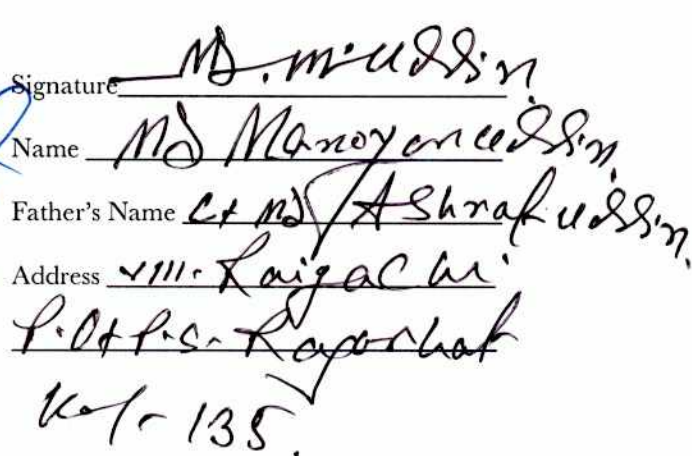 Signature MD. M. Uddin.
Name MD Manoyanuddin.
Father's Name Lt MD Ashrafuddin.
Address Vill- Raigachi
P.O+P.S- Rajarhat
Kol- 135.